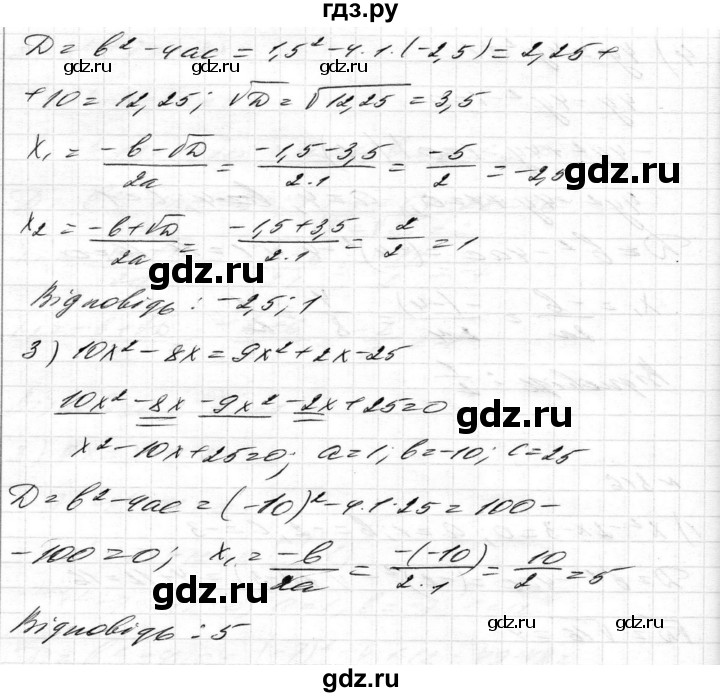 гдз.ру
D = b² - 4ac = 1,5² - 4·1·(-2,5) = 2,25 +
gdz.ru gdz.ru gdz.ru
+10 = 12,25; √D = √12,25 = 3,5
x₁ = (-b-√D)/2a = (-1,5-3,5)/2·1 = -5/2 = -2,5
gdz.ru
x₂ = (-b+√D)/2a = (-1,5+3,5)/2·1 = 2/2 = 1
gdz.ru
Відповідь: -2,5; 1
3) 10x² - 8x = 9x² + 2x - 25
10x² - 8x - 9x² - 2x + 25 = 0
gdz.ru
x² - 10x + 25 = 0; a = 1; b = -10; c = 25
D = b² - 4ac = (-10)² - 4·1·25 = 100 -
gdz.ru
-100 = 0; x₁ = -b/2a = -(-10)/2·1 = 10/2 = 5
gdz.ru
Відповідь: 5
gdz.ru gdz.ru
gdz.ru